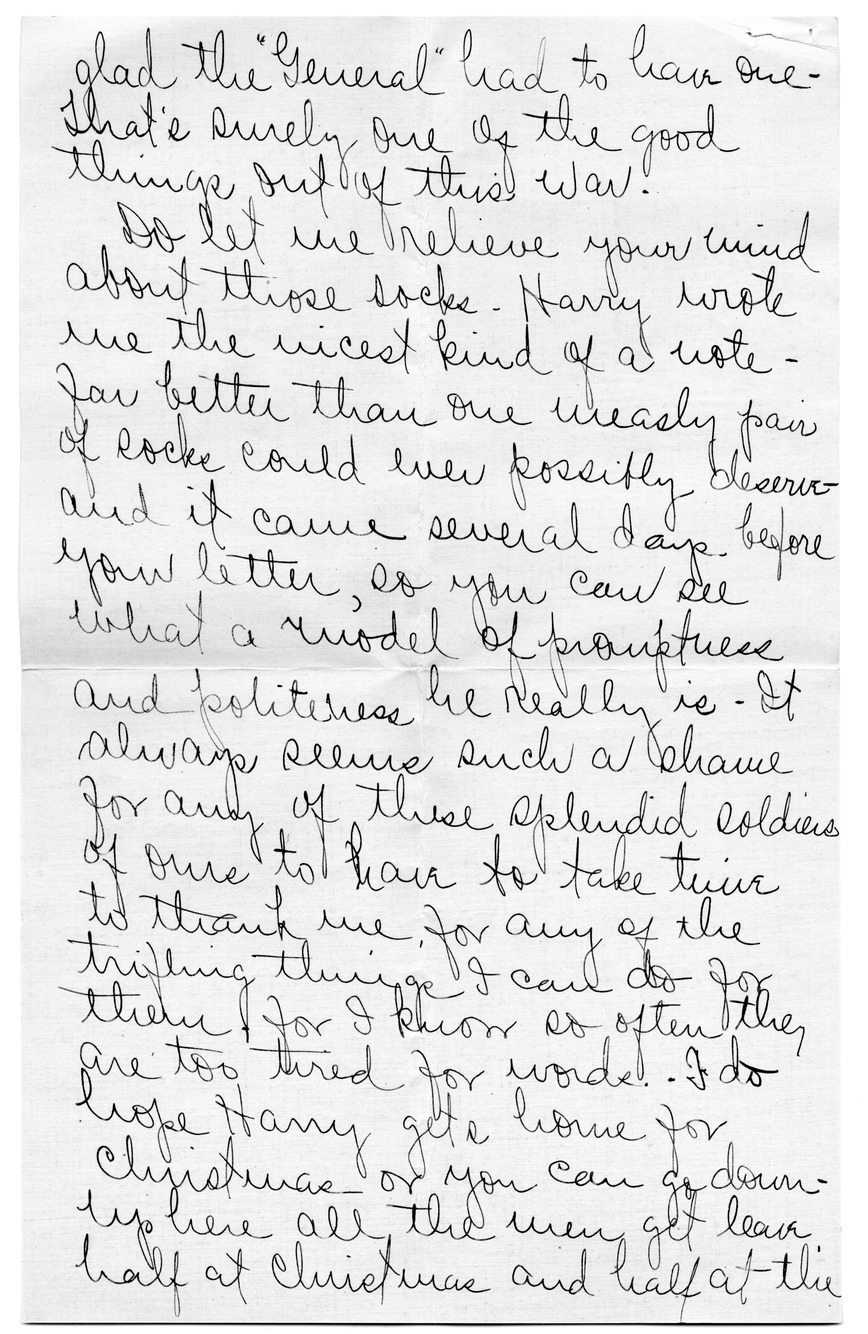 glad the "General" had to have one-
That's surely one of the good
things out of this war.
Do let me relieve your mind
about those socks - Harry wrote
me the nicest kind of a note -
far better than one measly pair
of socks could ever possibly deserve-
and it came several days before
your letter, so you can see
what a model of promptness
and politeness he really is - It
always seems such a shame
for any of these splendid soldiers
of ours to have to take time
to thank me, for any of the
trifling things I can do for
them, for I know so often they
are too tired for words. - I do
hope Harry gets home for
Christmas - or you can go down-
up here all the men get leave
half at Christmas and half at the